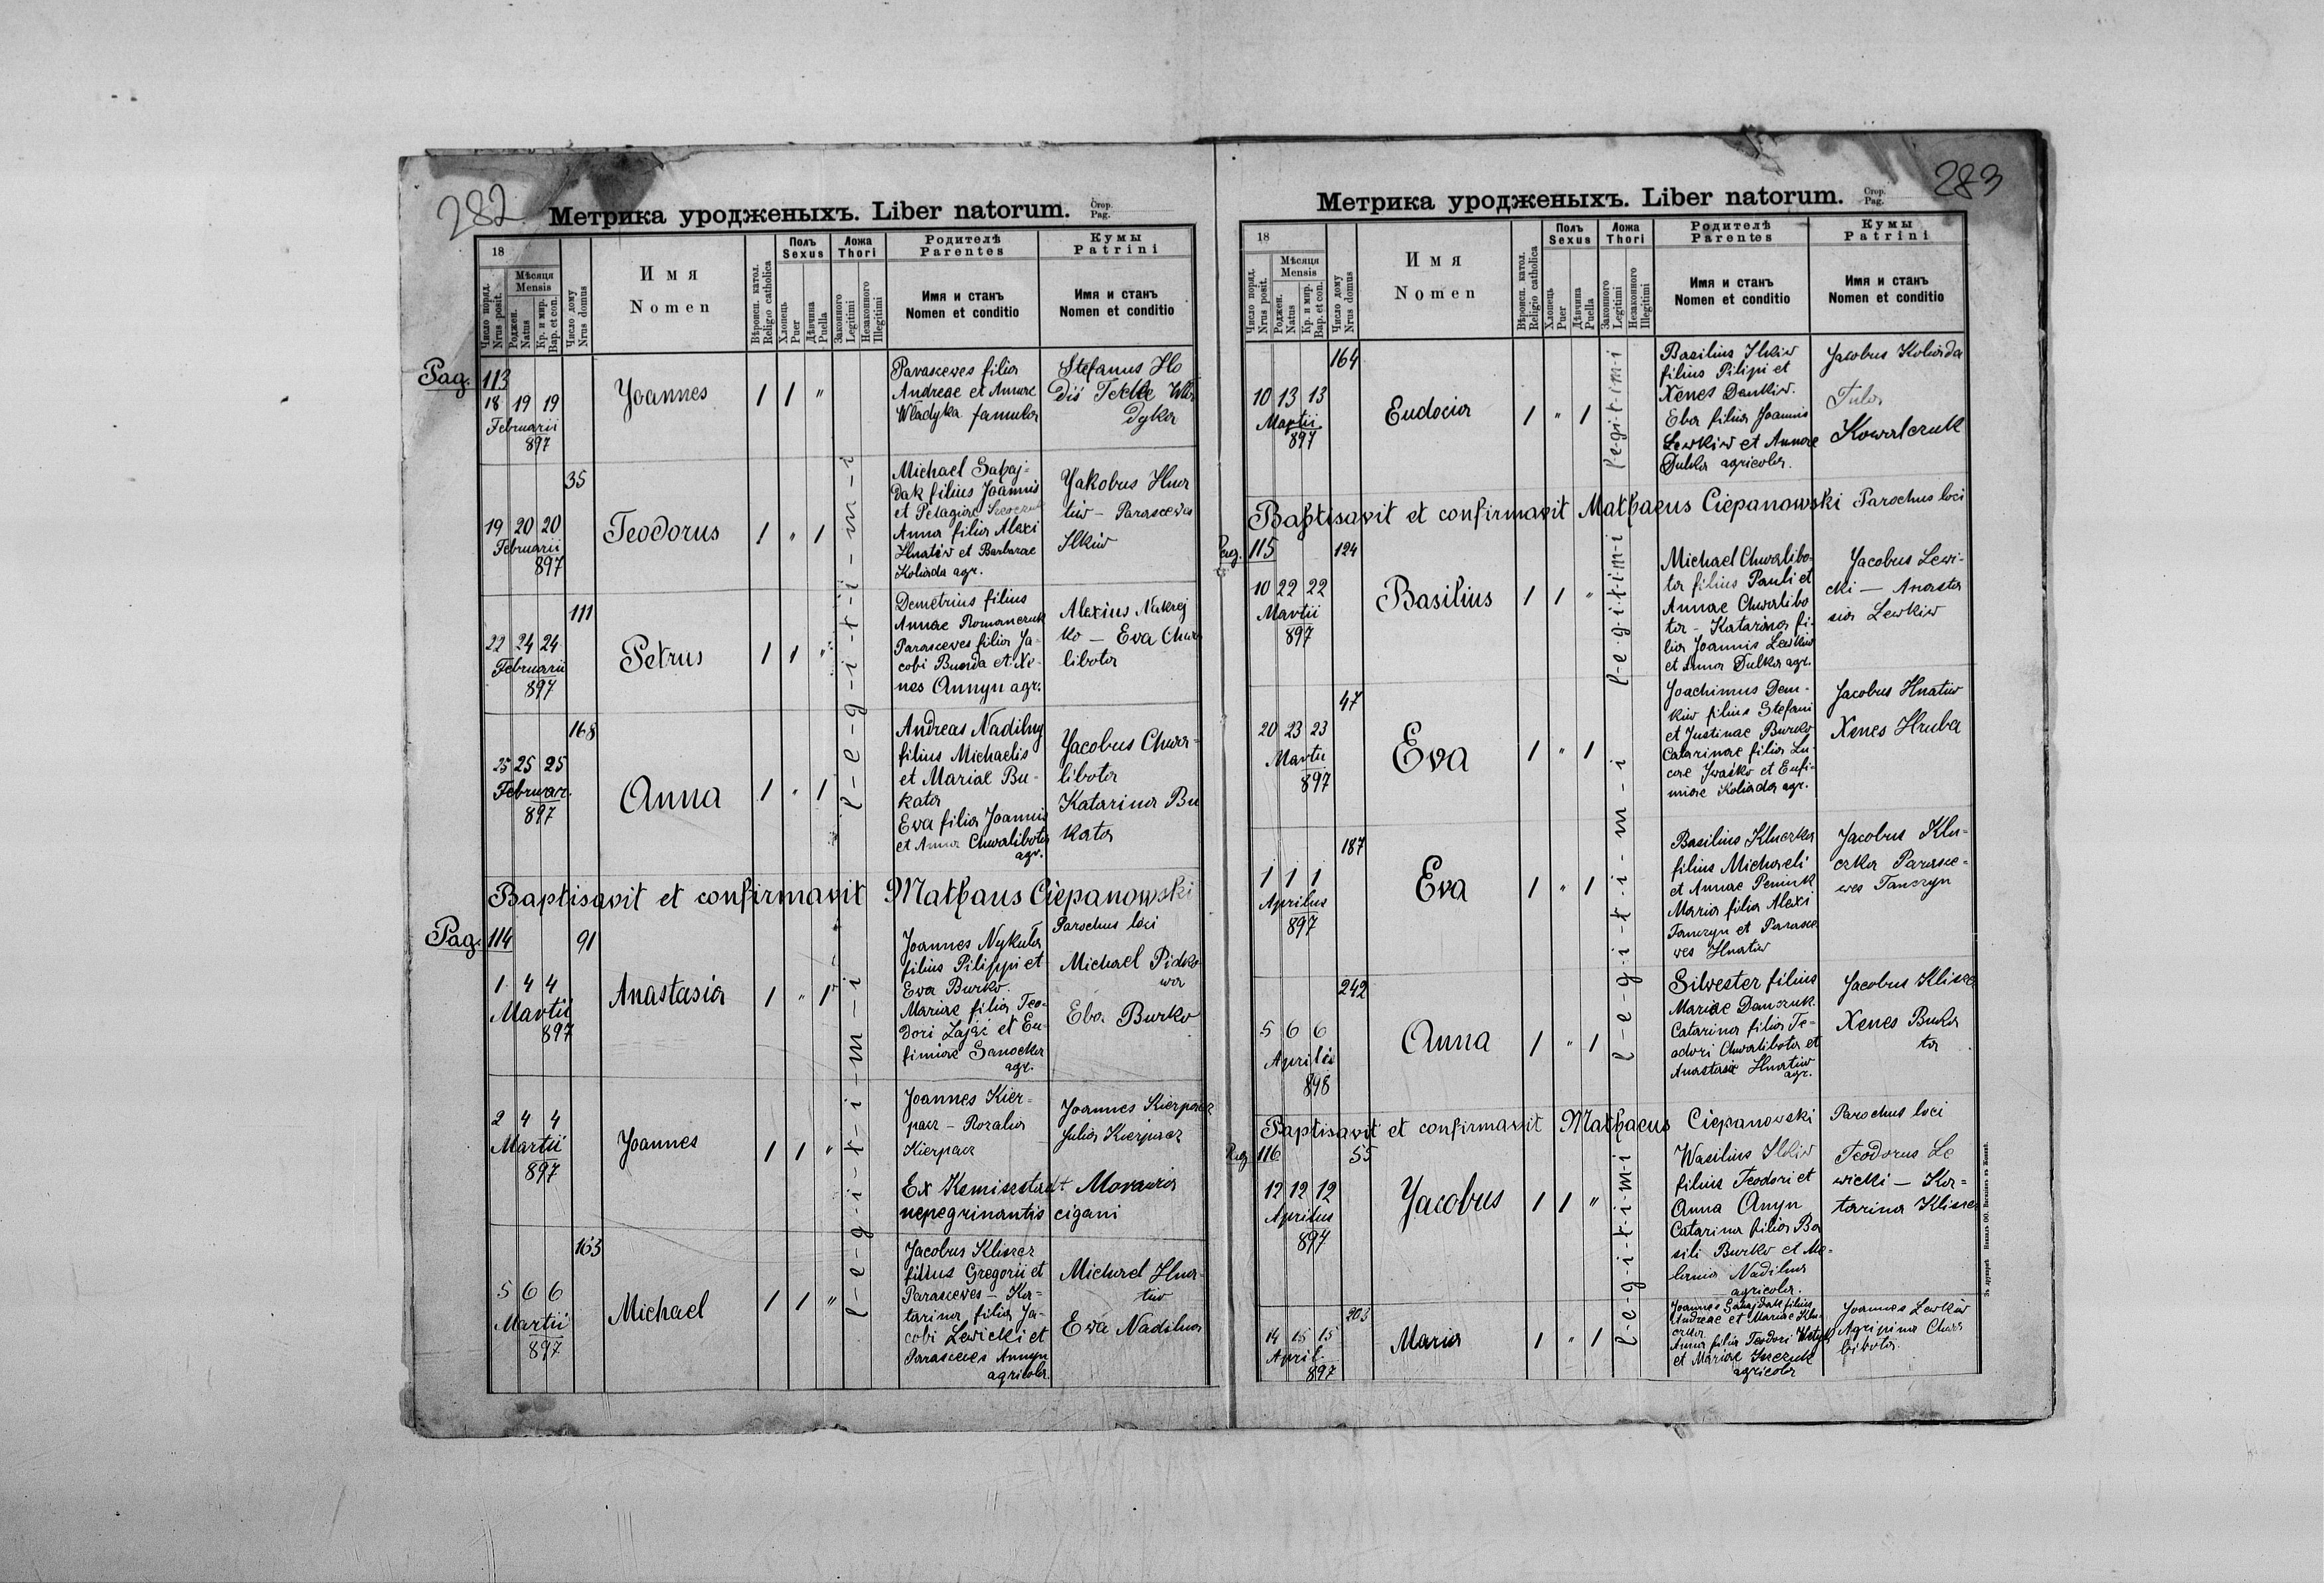 282
Метрика уродженыхъ. Liber natorum.
Стор.
Pag.
18
Мѣсяця
Mensis
Число поряд.
Nrus posit.
Роджен.
Natus
Кр. и мир.
Bap. et con.
Число дому
Nrus domus
Имя
Nomen
Вѣроисп. катол.
Religio catholica
Полъ
Sexus
Хлопець
Puer
Дѣвчина
Puella
Ложа
Thori
Законного
Legitimi
Незаконного
Illegitimi
Родителѣ
Parentes
Имя и станъ
Nomen et conditio
Кумы
Patrini
Имя и станъ
Nomen et conditio
Pag. 113
18 19 19
Februarii
897
Joannes 1 1 "
Parascewes filia
Andreae et Annae
Wladyka famula
Stefanus Ho
dis Tekle Wla
dyka
35
19 20 20
Februarii
897
Teodorus 1 " 1
l-e-g-i-t-i-m-i
Michael Sahaj-
dak filius Joannis
et Pelagiae
Anna filia Alexi
Hnatiw et Barbarae
Koliada agr.
Yakobus Hna
tiw - Parascewes
Ilkiw
111
22 24 24
Februarii
897
Petrus 1 1 "
Demetrius filius
Annae Romanczuk
Parascewes filia Ja-
cobi Bunda et Xe-
nes Annyn agr.
Alexius Nakrej
ko - Eva Chwa
libota
168
25 25 25
Februar.
897
Anna 1 " 1
Andreas Nadilny
filius Michaelis
et Mariae Bu-
kata
Eva filia Joannis
et Anna Chwalibota
agr.
Yacobus Chwa-
libota
Katarina Bu
kata
Baptisavit et confirmavit Mathaus Ciepanowski
Parochus loci
Pag. 114
91
1 4 4
Martii
897
Anastasia 1 " 1
l-e-g-i-t-i-m-i
Joannes Nykula
filius Pilippi et
Eva Burko.
Mariae filia Teo-
dori Zając et Eu-
fimiae Sanocka
agr.
Michael Pidko
wa
Eba Burko
2 4 4
Martii
897
Joannes 1 1 "
Joannes Kier-
pacz - Rozalia
Kierpacz
Joannes Kierpacz
Julia Kierpacz
Ex Kemisestadt Morawia
nepegrinantis cigani
163
5 6 6
Martii
897
Michael 1 1 "
Jacobus Kliszcz
filius Gregorii et
Parascewes - Ka-
tarina filia Ja-
cobi Lewicki et
Parascewes Annyn
agricola.
Michael Hna-
tiw
Ewa Nadilna
283
Метрика уродженыхъ. Liber natorum.
Стор.
Pag.
18
Мѣсяця
Mensis
Число поряд.
Nrus posit.
Роджен.
Natus
Кр. и мир.
Bap. et con.
Число дому
Nrus domus
Имя
Nomen
Вѣроисп. катол.
Religio catholica
Полъ
Sexus
Хлопець
Puer
Дѣвчина
Puella
Ложа
Thori
Законного
Legitimi
Незаконного
Illegitimi
Родителѣ
Parentes
Имя и станъ
Nomen et conditio
Кумы
Patrini
Имя и станъ
Nomen et conditio
164
10 13 13
Martii
897
Eudocia 1 " 1
l-e-g-i-t-i-m-i
Basilius Ilkiw
filius Pilipi et
Xenes Demkiw.
Eba filia Joannis
Lewkiw et Annae
Dulka agricola.
Jacobus Koliada
Kowalczuk
Baptisavit et confirmavit Mathaeus Ciepanowski Parochus loci
Pag. 115
124
10 22 22
Martii
897
Basilius 1 1 "
l-e-g-i-t-i-m-i
Michael Chwalibo-
ta filius Pauli et
Annae Chwalibo
ta - Katarina fi-
lia Joannis Lewkiw
et Anna Dulka agr.
Yacobus Lewi-
cki - Anasta
sia Lewkiw
47
20 23 23
Martii
897
Eva 1 " 1
l-e-g-i-t-i-m-i
Joachimus Dem-
kiw filius Stefani
et Justinae Burko
Catarinae filia Lu-
cae Iwaśko et Eufi-
miae Koliada agr.
Jacobus Hnatiw
Xenes Hruba
187
1 1 1
Aprilus
897
Eva 1 " 1
Basilius Kluczka
filius Michaeli
et Annae Peniuk
Maria filia Alexi
Tanczyn et Parasce
wes Hnatiw
Jacobus Klu-
czka Parasce-
wes Tanczyn
242
5 6 6
Aprilis
898
Anna 1 " 1
Silwester filius
Mariae Danczuk.
Catarina filia Te-
odori Chwalibota et
Anastasia Hnatiw
agr.
Jacobus Kliszcz
Xenes Buka
ta
Baptisavit et confirmavit Mathaeus Ciepanowski Parochus loci
Pag. 116
55
12 12 12
Aprilus
897
Yacobus 1 1 "
l-e-g-i-t-i-m-i
Wasilius Ilkiw
filius Teodori et
Anna Anyn
Catarina filia Ba
sili Burko et Me-
lania Nadilna
agricola.
Teodorus Le
wicki - Ka-
tarina Kliszcz
203
14 15 15
April.
897
Maria 1 " 1
Joannes Sahajdak filius
Andreae et Mariae Klu
czka
Anna filia Teodori
et Mariae
agricola
Joannes Lewkiw
Agripina Chwa
libota.